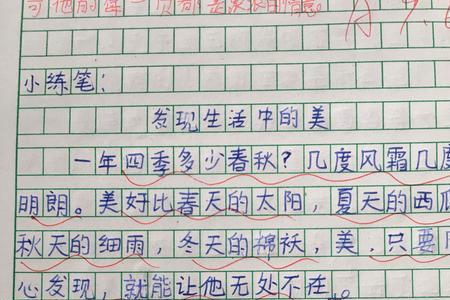 小练笔：
发现生活中的美
一年四季多少春秋？几度风霜几度
明朗。美好比春天的太阳，夏天的西瓜
秋天的细雨，冬天的棉袄，美，只要
心发现，就能让他无处不在。